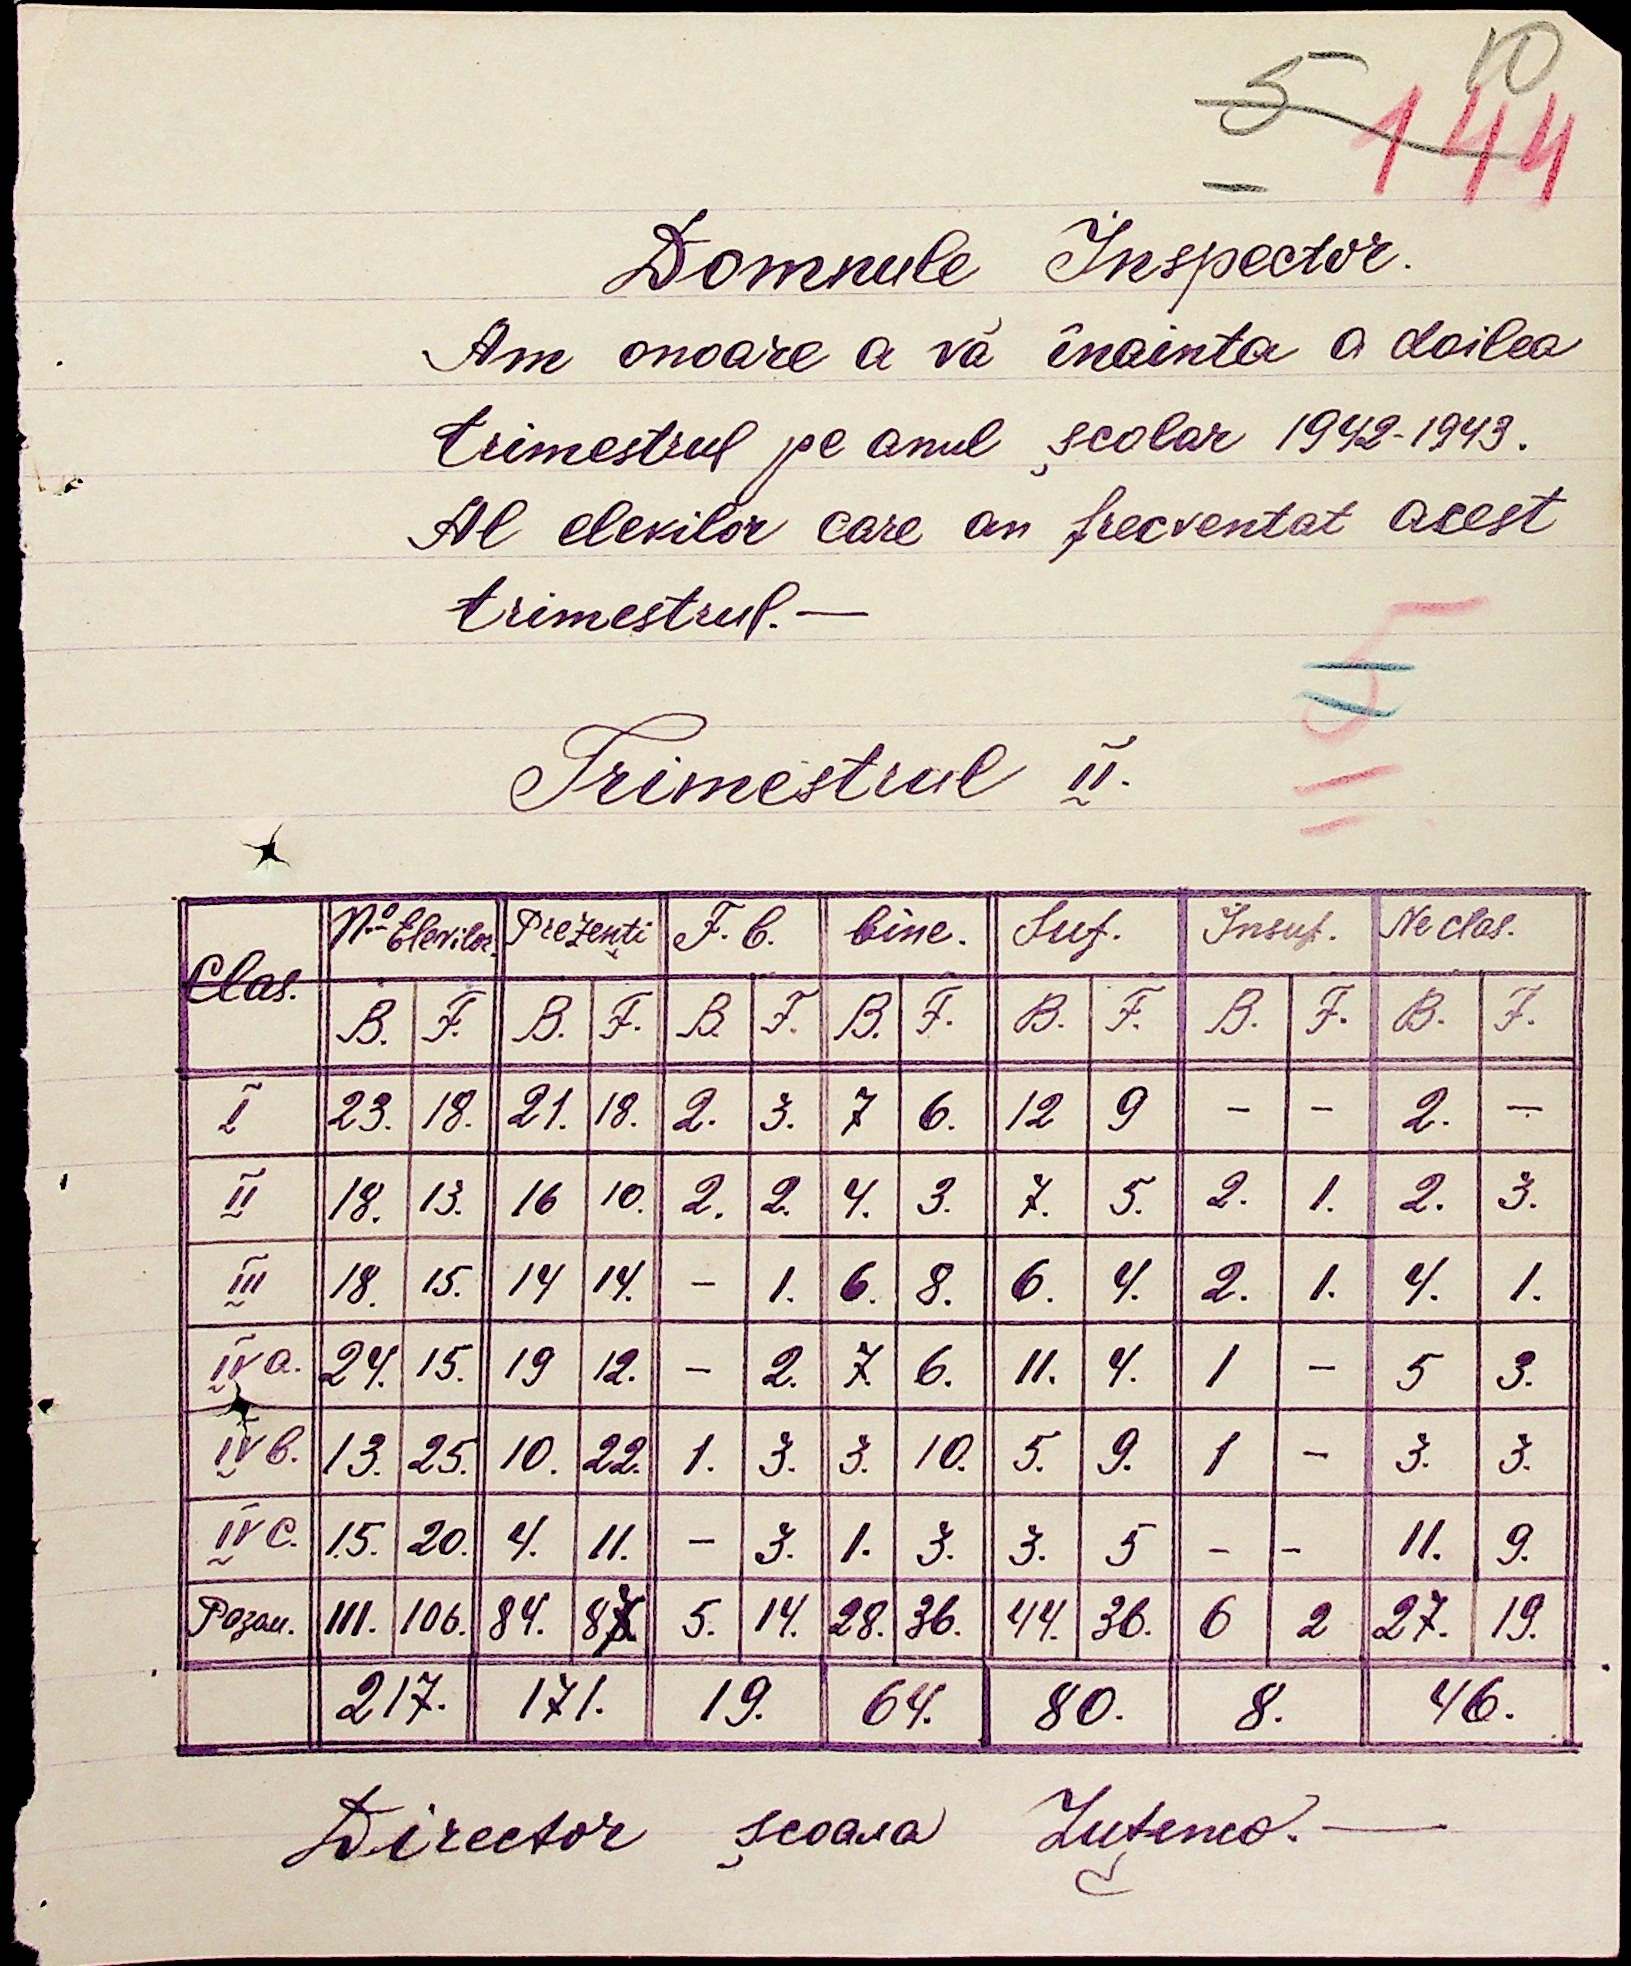 10
5
144
Domnule Inspector.
Am onoare a vă înainta a doilea
trimestrul pe anul școlar 1942-1943.
Al elevilor care an frecventat acest
trimestrul.—
5
Trimestrul II.
Clas. N.º Elevilor. Prezenți F. b. bine. Suf. Insuf. Ne clas.
B. F. B. F. B. F. B. F. B. F. B. F. B. F.
I 23. 18. 21. 18. 2. 3. 7 6. 12 9 - - 2. -
II 18. 13. 16 10. 2. 2. 4. 3. 7. 5. 2. 1. 2. 3.
III 18. 15. 14 14. - 1. 6. 8. 6. 4. 2. 1. 4. 1.
IV a. 24. 15. 19 12. - 2. 7. 6. 11. 4. 1 - 5 3.
IV b. 13. 25. 10. 22. 1. 3. 3. 10. 5. 9. 1 - 3. 3.
IV c. 15. 20. 4. 11. - 3. 1. 3. 3. 5 - - 11. 9.
111. 106. 84. 87 5. 14. 28. 36. 44. 36. 6 2 27. 19.
217. 171. 19. 64. 80. 8. 46.
Director școala